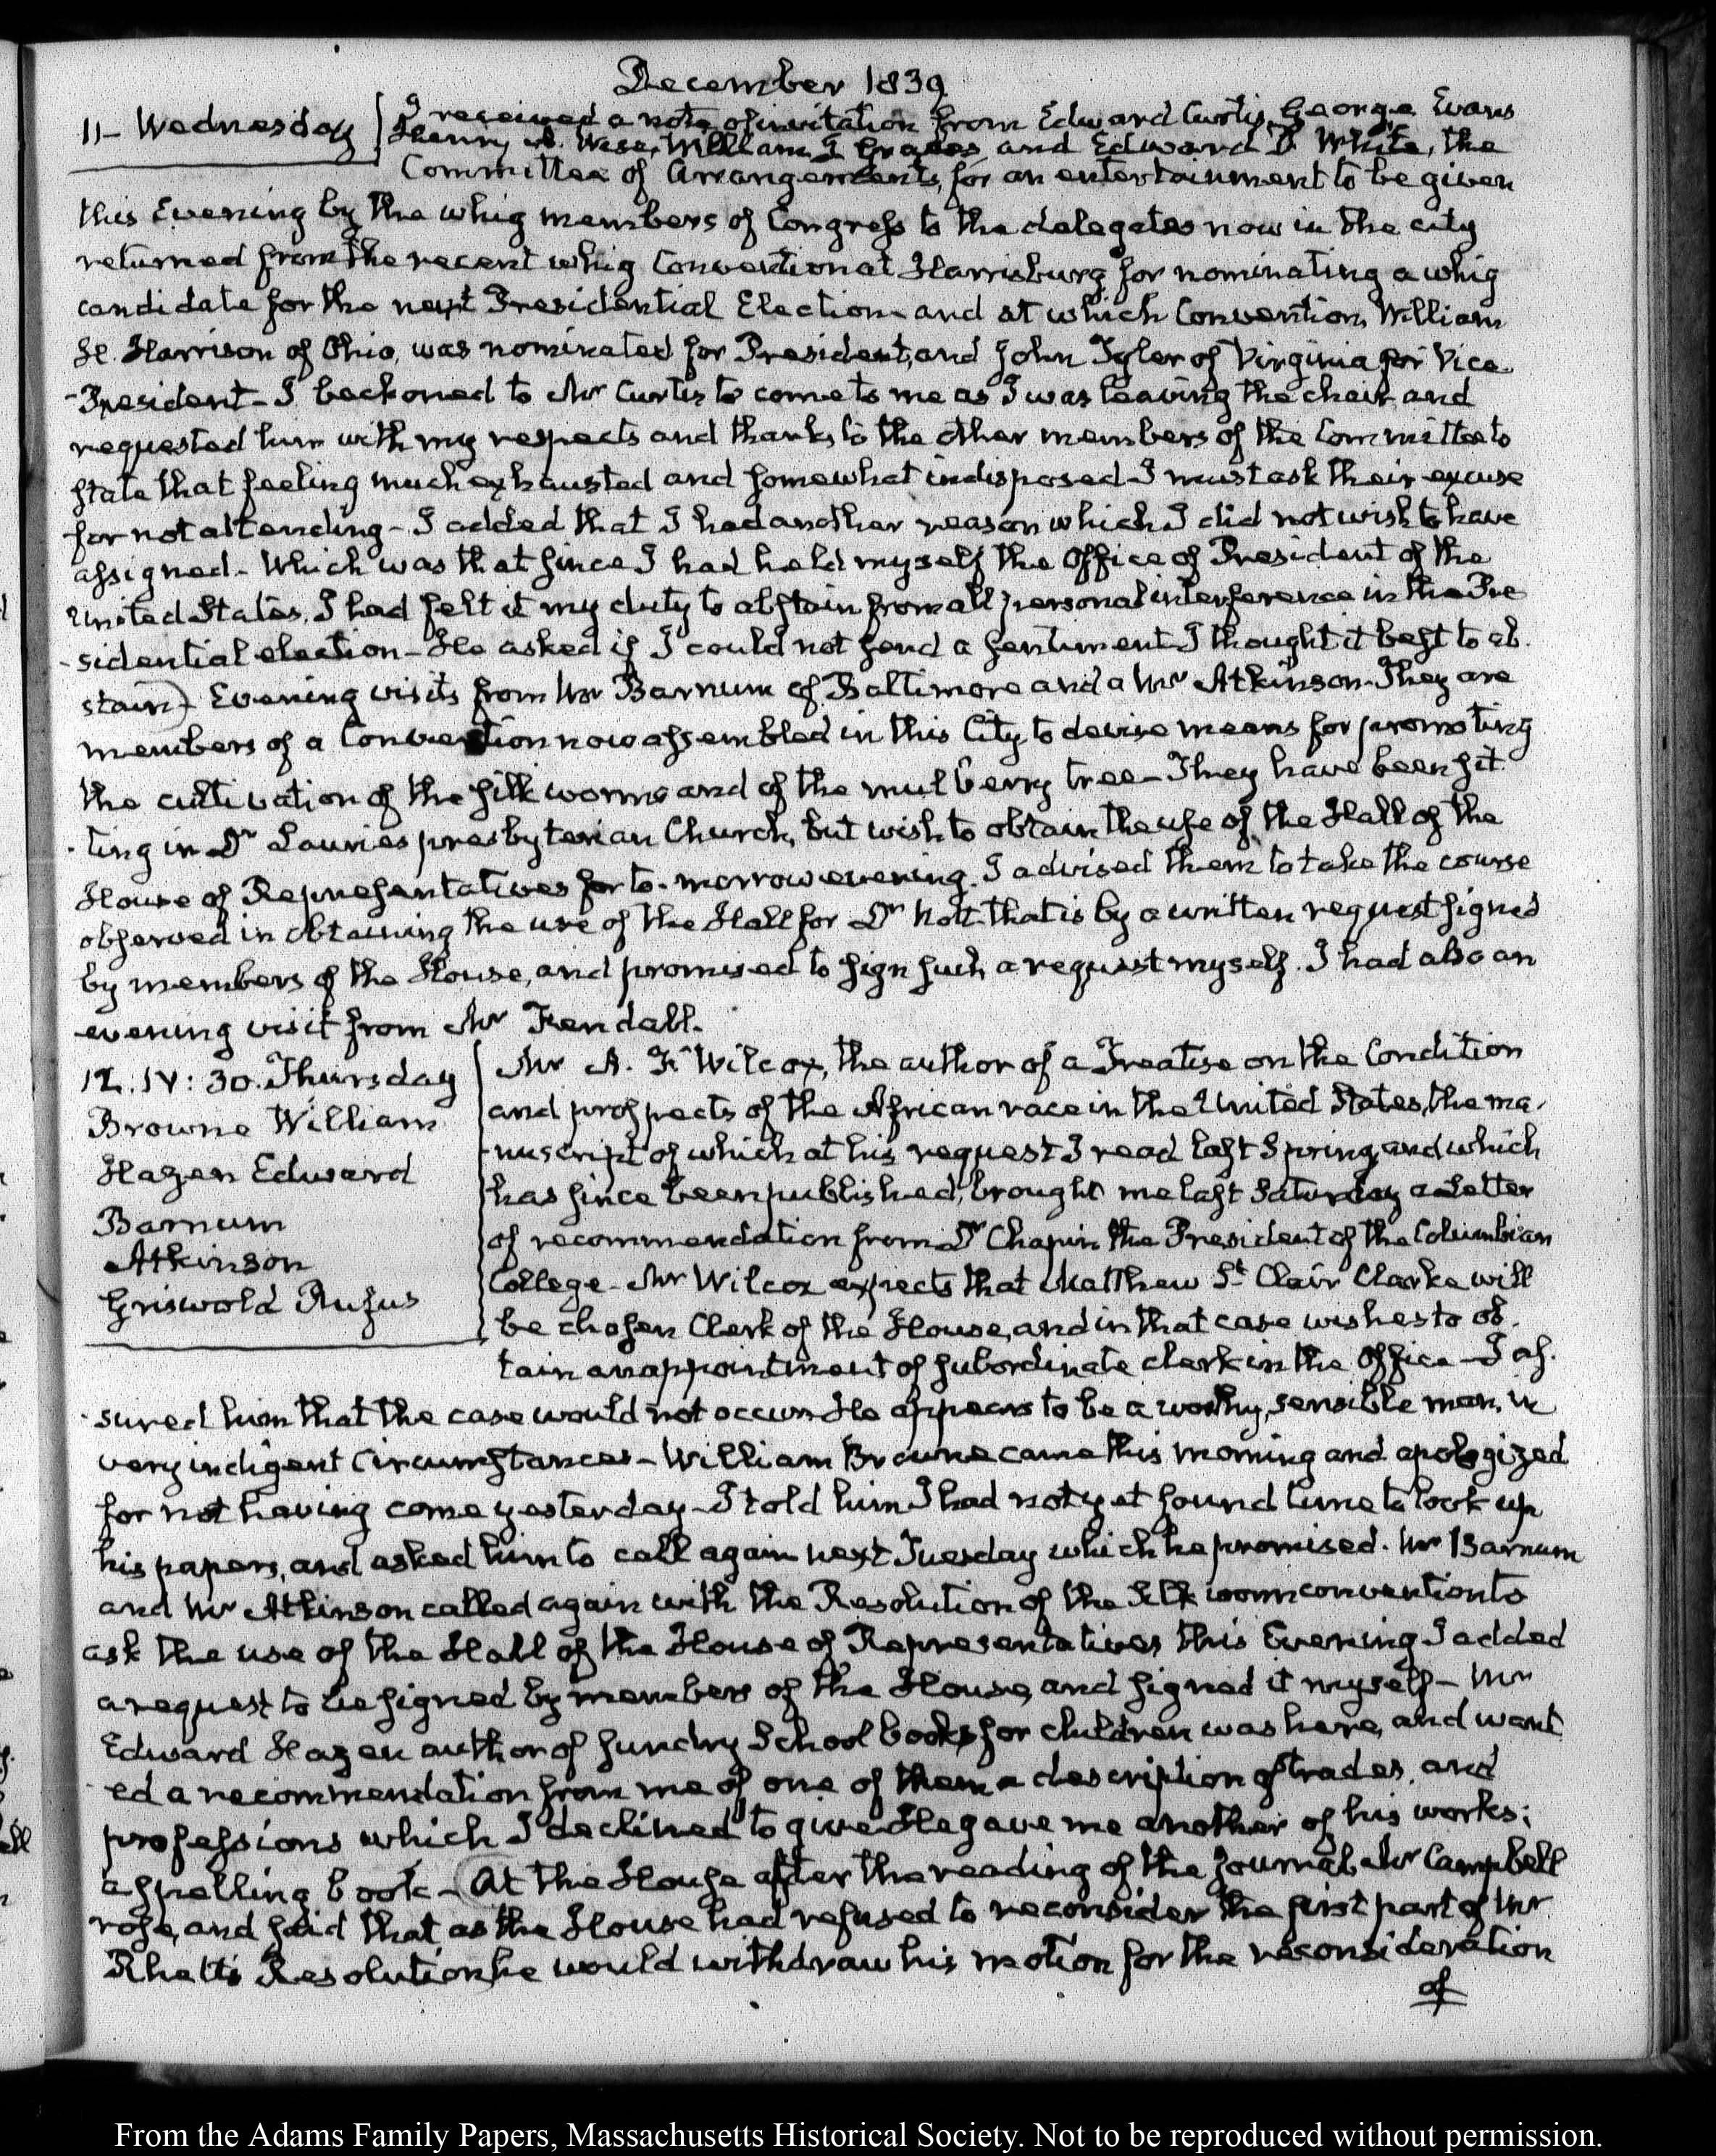 December 1839
11- Wednesday
I received a note of invitation from Edward Curtis, George Evans
Henry A. Wise, William J Graves and Edward D White, the
Committee of Arrangements, for an entertainment to be given
this Evening by the whig members of Congress to the delegates now in the city
returned from the recent whig Convention at Harrisburg for nominating a whig
candidate for the next Presidential Election and at which Convention William
H. Harrison of Ohio, was nominated for President, and John Tyler of Virginia for Vice
-President- I beckoned to Mr Curtis to come to me as I was leaving the chair and
requested him with my respects and thanks to the other members of the Committee to
state that feeling much exhausted and somewhat indisposed I must ask their excuse
for not attending- I added that I had another reason which I did not wish to have
assigned- Which was that since I had held myself the Office of President of the
United States, I had felt it my duty to abstain from all personal interference in the Pre
-sidential election- He asked if I could not send a sentiment I thought it best to ab.
stain- Evening visits from Mr Barnum of Baltimore and a Mr Atkinson- They are
members of a Convention now assembled in this City, to devise means for promoting
the cultivation of the silk worms and of the mulberry tree- They have been sit
-ting in Dr Lauries presbyterian Church, but wish to obtain the use of the Hall of the
House of Representatives for to-morrow evening. I advised them to take the course
observed in obtaining the use of the Hall for Dr Nott that is by a written request signed
by members of the House, and promised to sign such a request myself. I had also an
evening visit from Mr Kendall.
12. IV: 30. Thursday
Browne William
Hazen Edward
Barnum
Atkinson
Griswold Rufus
Mr A. F. Wilcox, the author of a Treatise on the Condition
and prospects of the African race in the United States, the ma-
-nuscript of which at his request I read last Spring, and which
has since been published, brought me last Saturday a Letter
of recommendation from Dr Chapin the President of the Columbian
College- Mr Wilcox expects that Matthew St Clair Clarke will
be chosen Clerk of the House, and in that case wishes to ob.
tain an appointment of subordinate clerk in the Office- I as.
-sured him that the case would not occur He appears to be a worthy, sensible man, in
very indigent Circumstances- William Browne came this morning and apologized
for not having come yesterday- I told him I had not yet found time to look up
his papers, and asked him to call again next Tuesday which he promised. Mr Barnum
and Mr Atkinson called again with the Resolution of the silk worm convention to
ask the use of the Hall of the House of Representatives this Evening I added
a request to be signed by members of the House, and signed it myself- Mr
Edward Hazen author of sundry School books for children was here, and want
-ed a recommendation from me of one of them a description of trades, and
professions which I declined to give He gave me another of his works;
a spelling book- At the House after the reading of the journal, Mr Campbell
rose, and said that as the House had refused to reconsider the first part of Mr
Rhetts Resolution, he would withdraw his motion for the reconsideration
of
From the Adams Family Papers, Massachusetts Historical Society. Not to be reproduced without permission.